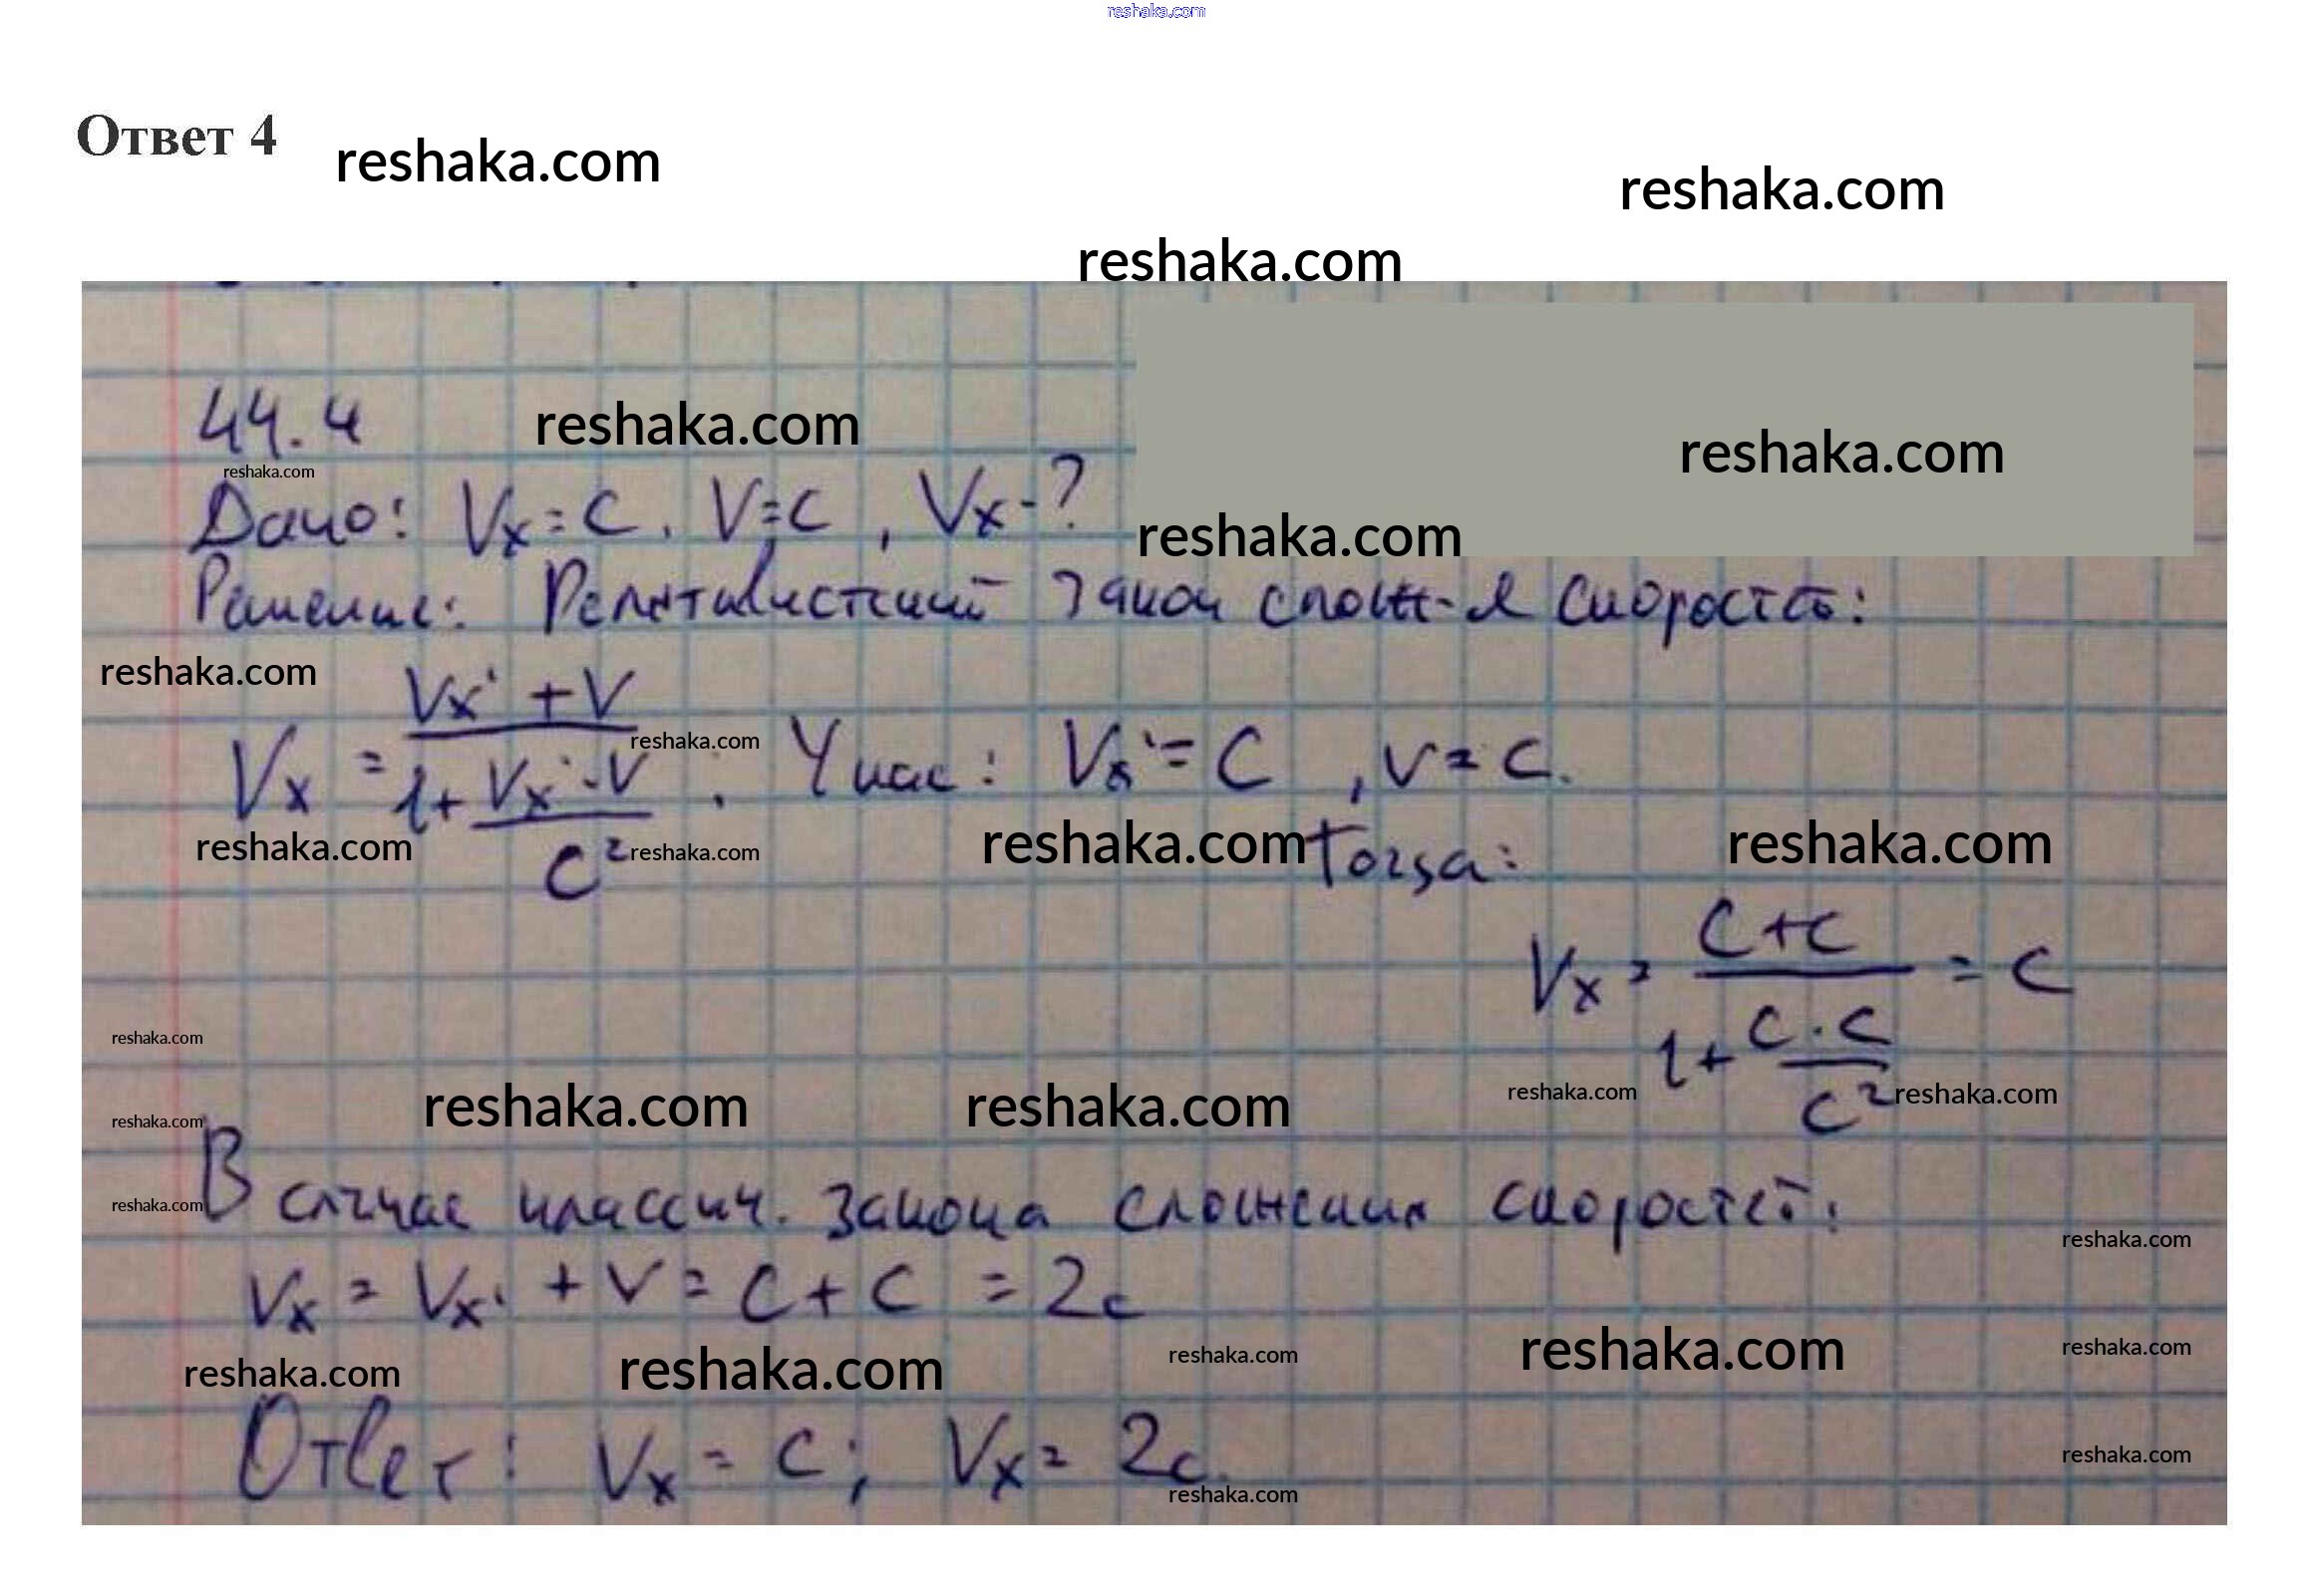 reshaka.com
Ответ 4
reshaka.com
reshaka.com
reshaka.com
44.4
reshaka.com
reshaka.com
reshaka.com
Дано: Vx = C, V = C, Vx - ?
reshaka.com
Решение: Релятивистский закон слож-я скоростей:
reshaka.com
Vx = (Vx' + V) / (1 + (Vx' · V) / C²). У нас: Vx' = C, V = C.
reshaka.com
reshaka.com
reshaka.com
reshaka.com
Тогда:
reshaka.com
Vx = (C + C) / (1 + (C · C) / C²) = C
reshaka.com
reshaka.com
reshaka.com
reshaka.com
reshaka.com
reshaka.com
reshaka.com
В случае классич. закона сложения скоростей:
reshaka.com
Vx = Vx' + V = C + C = 2c
reshaka.com
reshaka.com
reshaka.com
reshaka.com
reshaka.com
Ответ: Vx = C; Vx = 2c.
reshaka.com
reshaka.com